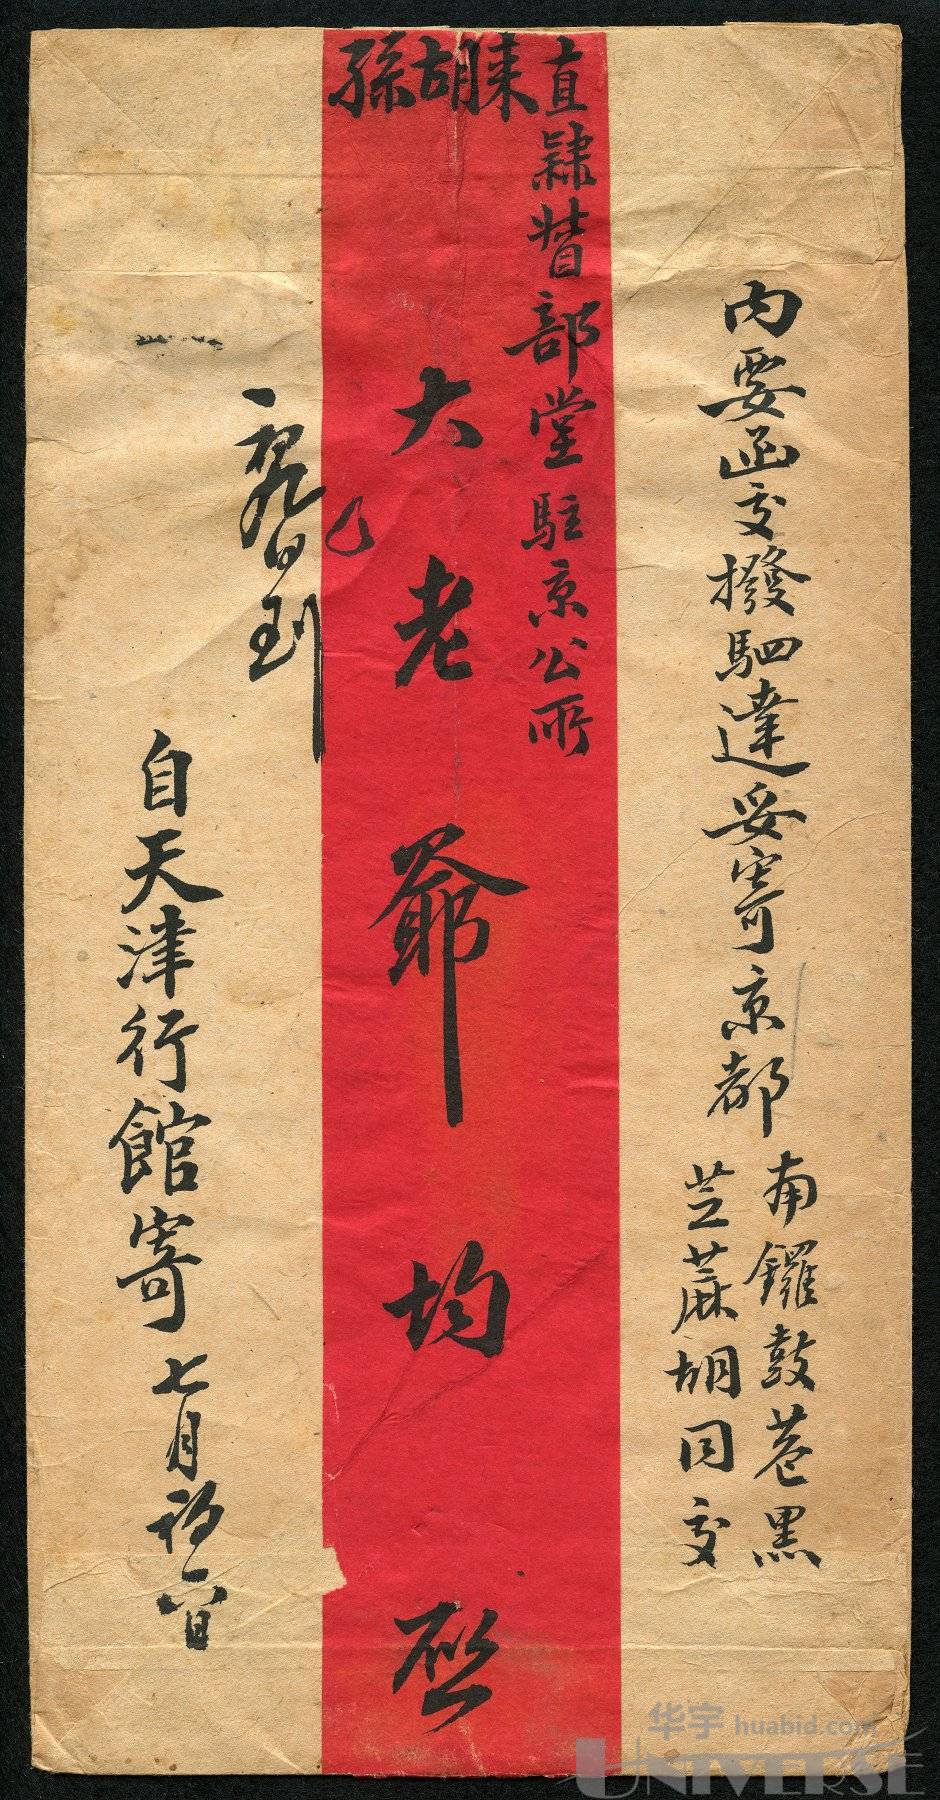 内要函交撥駟達妥寄京都
南鑼鼓巷黑
芝蔴胡同交
直隸督部堂駐京公所
陳胡孫
大老爺均啟
初九日到
自天津行館寄 七月初六日
华宇 huabid.com
UNIVERSE